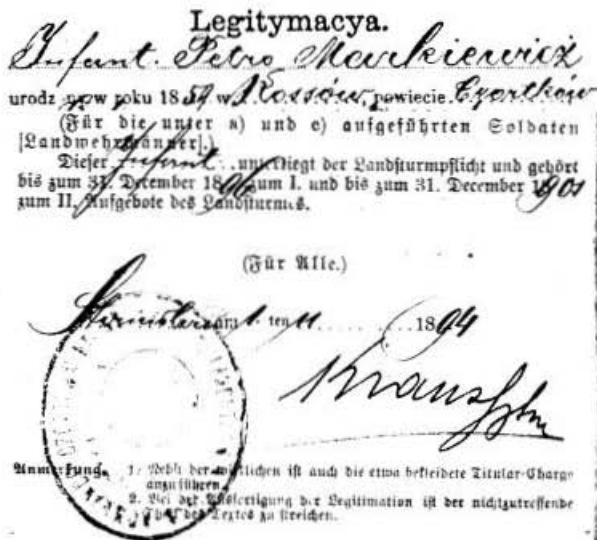 Legitymacya.
Infant. Petro Markiewicz
urodz. w roku 1859 w Kossów, powiecie Czortków
(Für die unter a) und c) aufgeführten Soldaten
[Landwehrmänner].)
Dieser Infant unterliegt der Landsturmpflicht und gehört
bis zum 31. December 1896 zum I. und bis zum 31. December 1901
zum II. Aufgebote des Landsturmes.
(Für Alle.)
am 1. ten 11 1894
Anmerkung. 1. Nebst der wirklichen ist auch die etwa bekleidete Titular-Charge
anzuführen.
2. Bei der Ausfertigung der Legitimation ist der nichtzutreffende
Theil des Textes zu streichen.